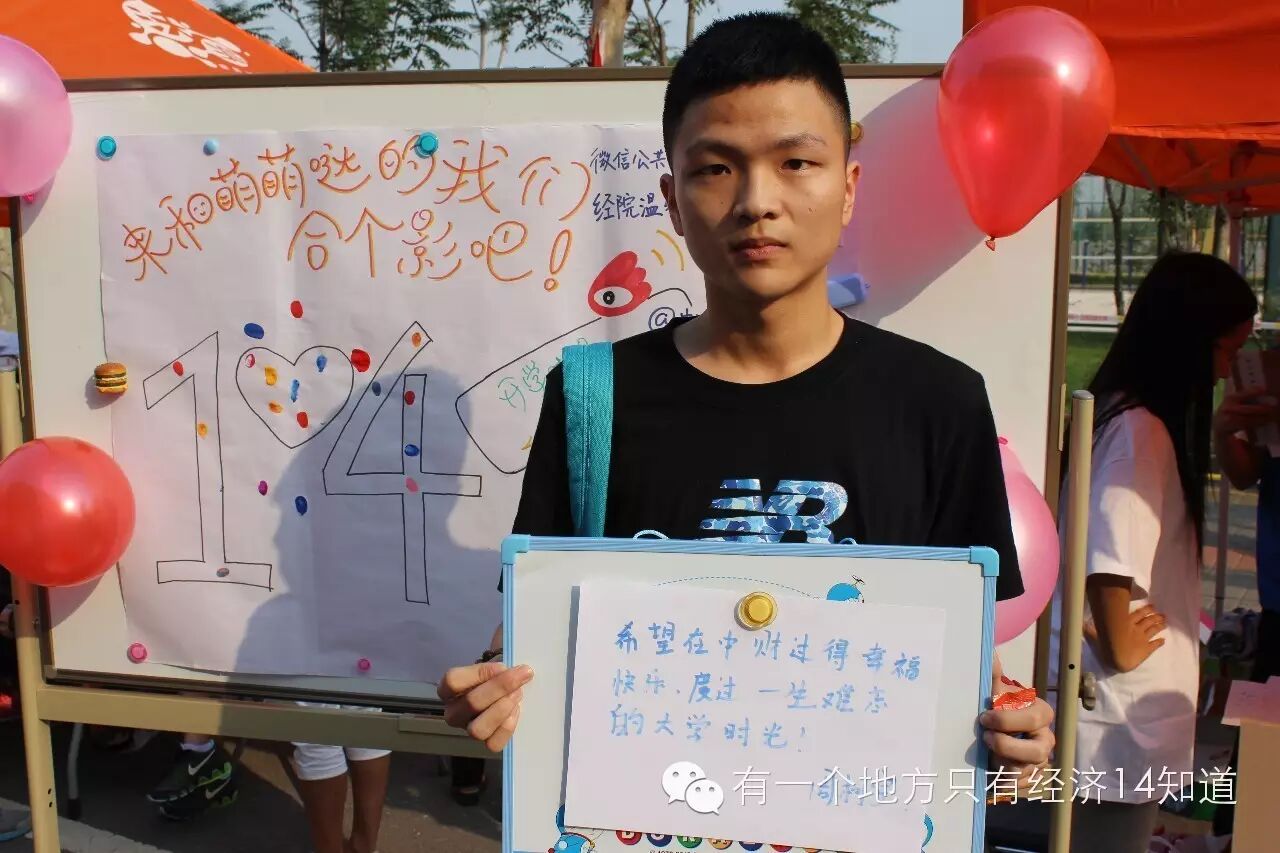 来和萌萌哒的我们
合个影吧!
微信公共
经院温
@
14
开学
希望在中财过得幸福
快乐、度过一生难忘
的大学时光!
有一个地方只有经济14知道